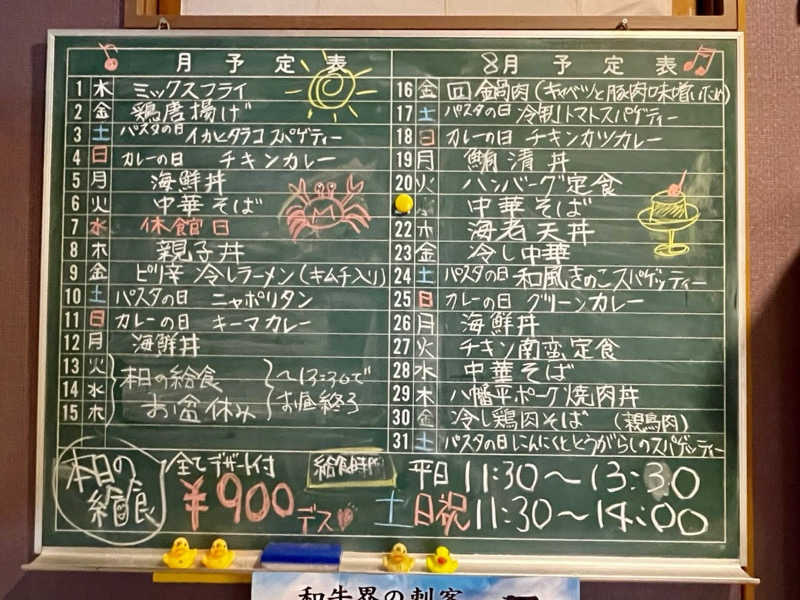 月予定表
1 木 ミックスフライ
2 金 鶏唐揚げ
3 土 パスタの日 イカとタラコ スパゲティー
4 日 カレーの日 チキンカレー
5 月 海鮮丼
6 火 中華そば
7 水 休館日
8 木 親子丼
9 金 ピリ辛 冷しラーメン(キムチ入り)
10 土 パスタの日 ニャポリタン
11 日 カレーの日 キーマカレー
12 月 海鮮丼
13 火
14 水
15 木
本日の給食
お盆休み
〜13:30で
お昼終了
8月予定表
16 金 回鍋肉(キャベツと豚肉味噌いため)
17 土 パスタの日 冷製トマトスパゲティー
18 日 カレーの日 チキンカツカレー
19 月 鮪漬丼
20 火 ハンバーグ定食
中華そば
22 木 海老天丼
23 金 冷し中華
24 土 パスタの日 和風きのこスパゲッティー
25 日 カレーの日 グリーンカレー
26 月 海鮮丼
27 火 チキン南蛮定食
28 水 中華そば
29 木 八幡平ポーク焼肉丼
30 金 冷し鶏肉そば (親鳥肉)
31 土 パスタの日 にんにくととうがらしのスパゲッティー
本日の給食
全てデザート付
¥900デス
給食時間
平日 11:30〜13:30
土日祝 11:30〜14:00
和牛界の刺客